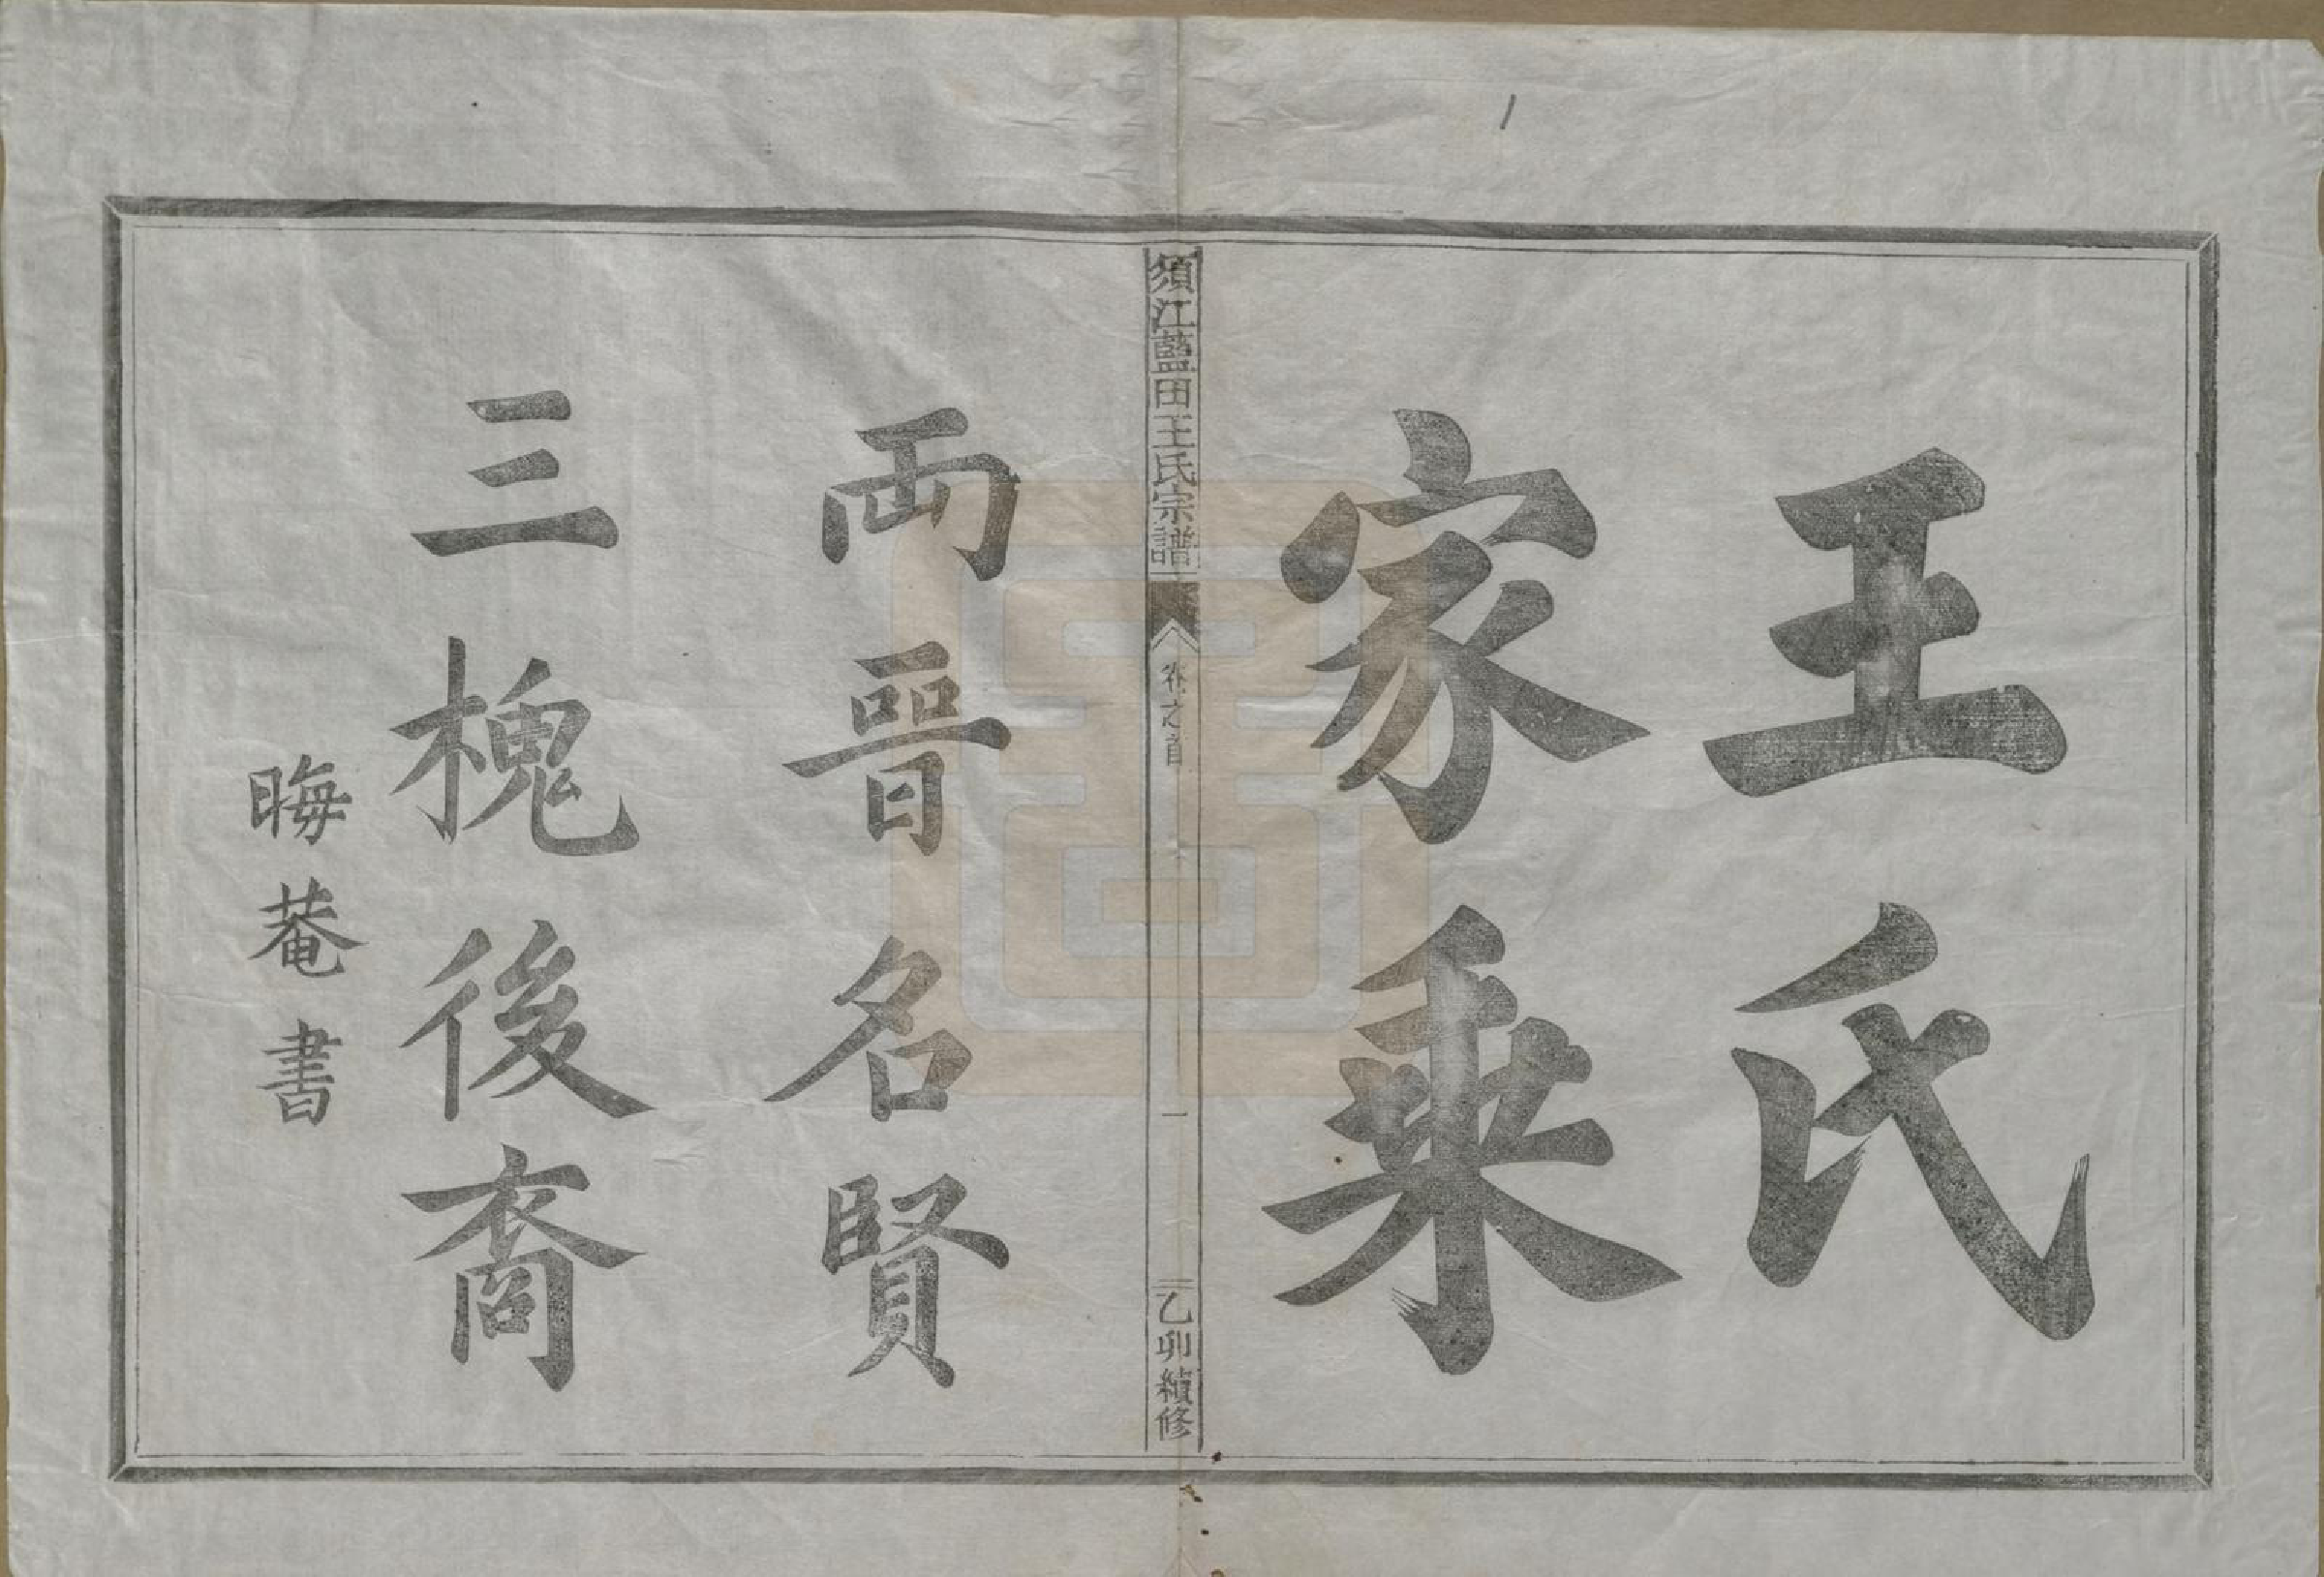 王氏
家乘
須江藍田王氏宗譜
卷之首
一
乙卯續修
両晉名賢
三槐後裔
晦菴書